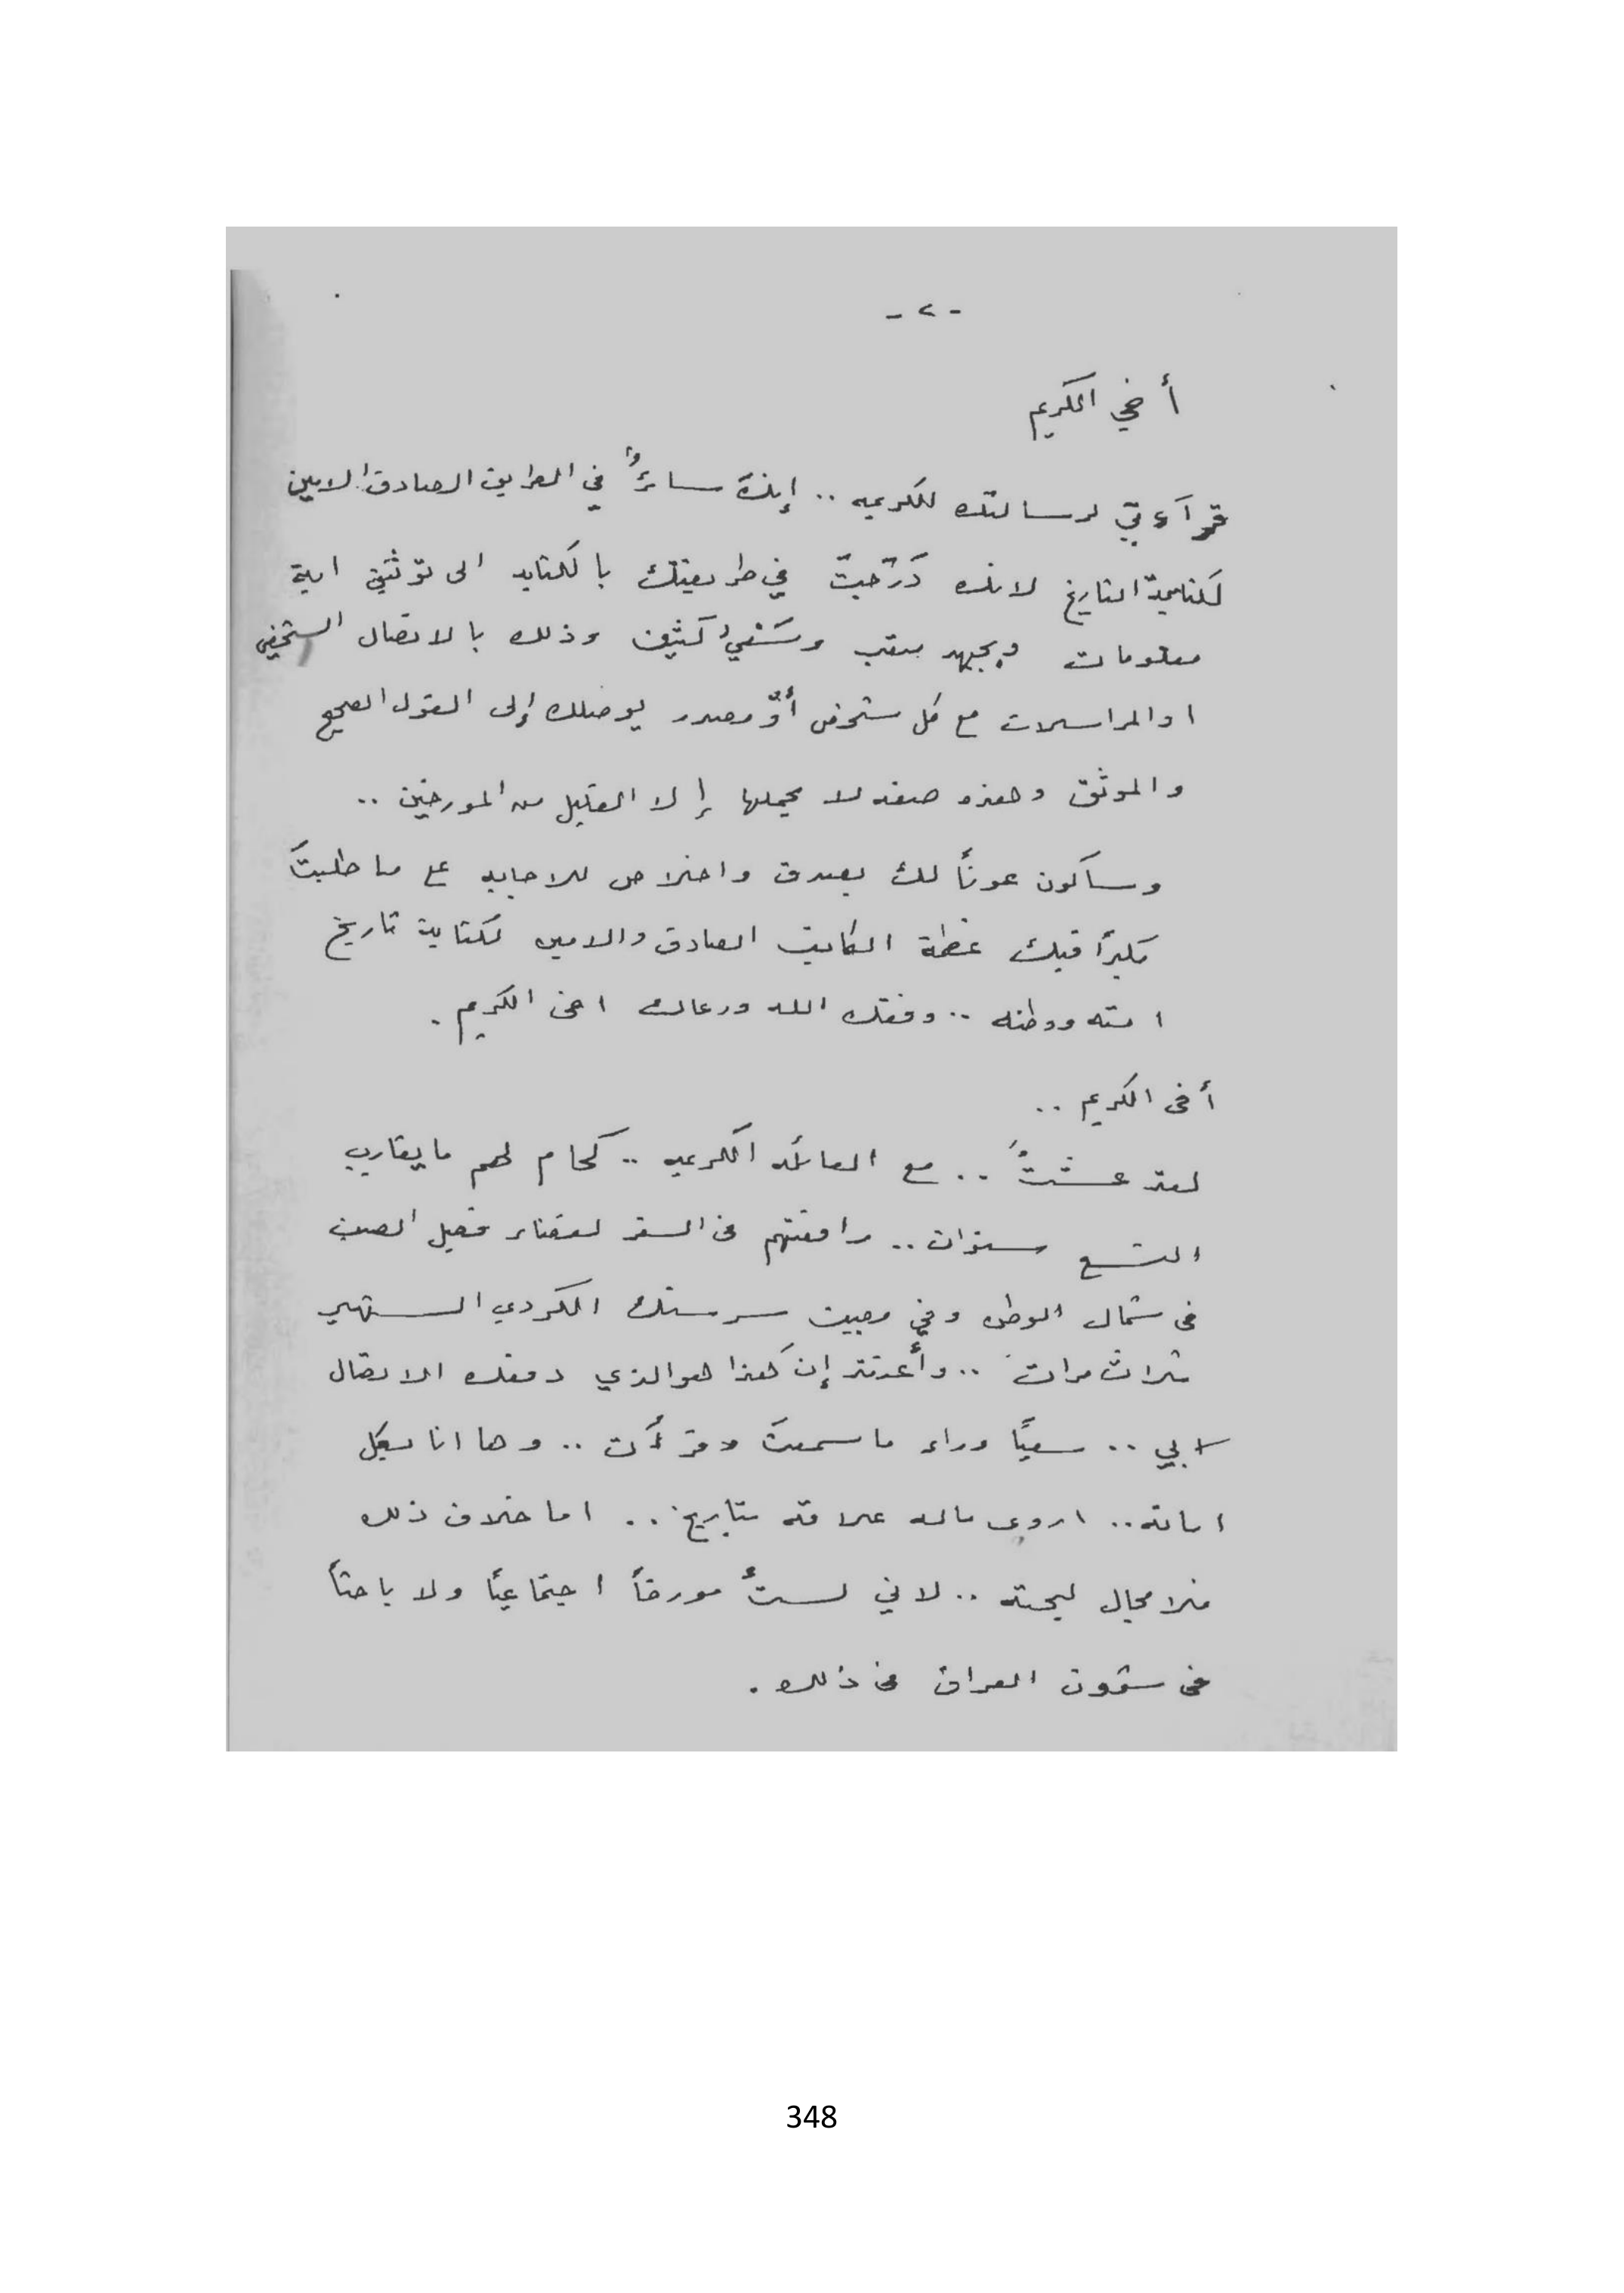 - ٢ -
أخي الكريم
قرآءتي لرسالتك الكريمه .. إنك سائرٌ في الطريق الصادق الامين
لكتابة التاريخ لانك دَرَجتَ في طريقتك بالكتابه الى توثيق اية
معلومات وبجهد متعب وسَعْيٍ كثيف وذلك بالاتصال الشخصي
او المراسلات مع كل شخص أو مصدر يوصلك إلى القول الصحيح
والموثق وهذه صفه لا يحملها إلا القليل من المورخين ..
وسأكون عوناً لك بصدق واخلاص للاجابه على ما طلبتَ
مكبراً فيك عظمة الكاتب الصادق والامين لكتابة تاريخ
امته ووطنه .. وفقك الله ورعاك اخي الكريم .
أخي الكريم ..
لقد عشتُ .. مع العائله الكريمه .. كحام لهم مايقارب
التسع سنوات .. رافقتهم في السفر لقضاء فصل الصيف
في شمال الوطن وفي مصيف سرسنك الكردي الشهير
ثلاث مرات .. وأعتقد إن هذا هو الذي دفعك الاتصال
بي .. سعيًا وراء ما سمعتَ وقرأت .. وها انا بكل
امانه .. اروي ماله علاقة بتاريخ .. اما خلاف ذلك
فلا مجال لبحثه .. لاني لستُ مورخاً اجتماعيًا ولا باحثاً
في شؤون العراق في ذلك .
348